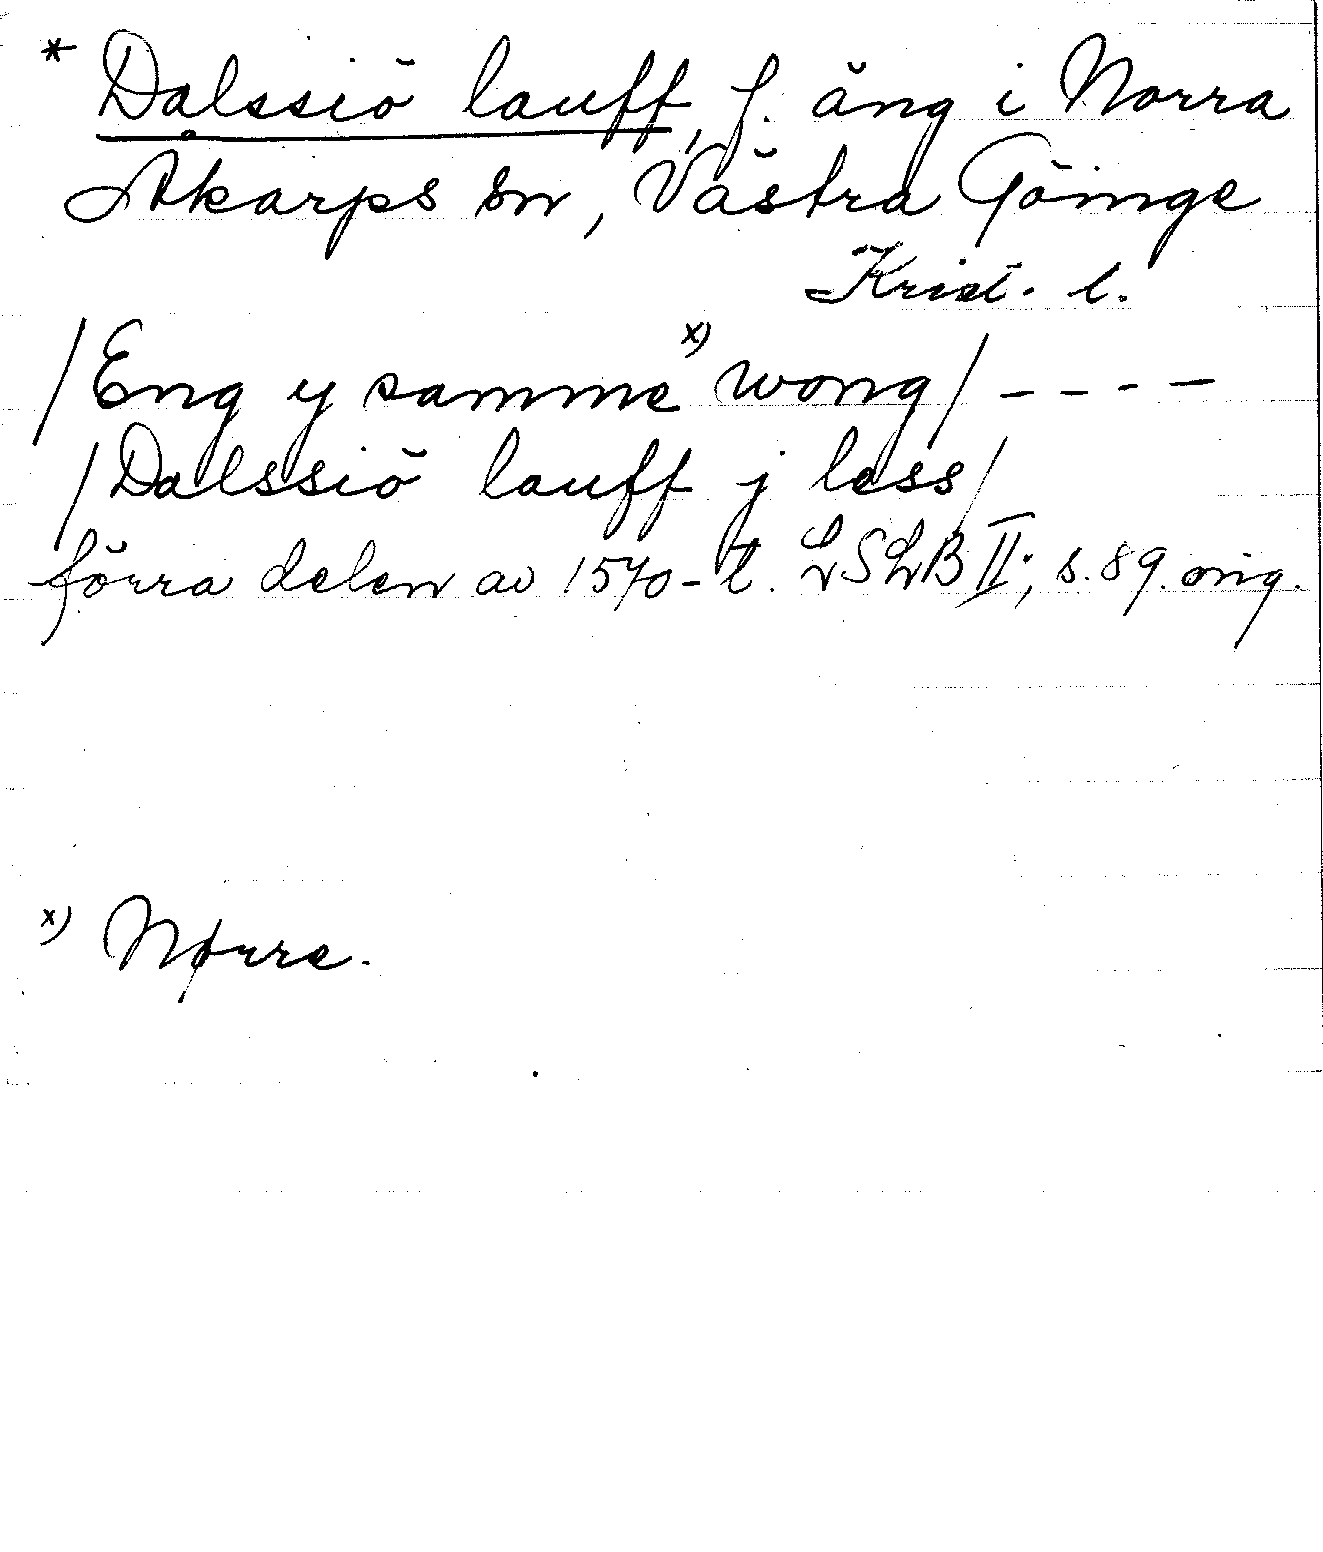 * Dalssiö lauff, f. äng i Norra
Åkarps sn, Västra Göinge
Krist. l.
/Eng y samme x) wong/ - - - -
/Dalssiö lauff j less/
förra delen av 1570-t. LSLB II; s. 89. orig.
x) Nørre.